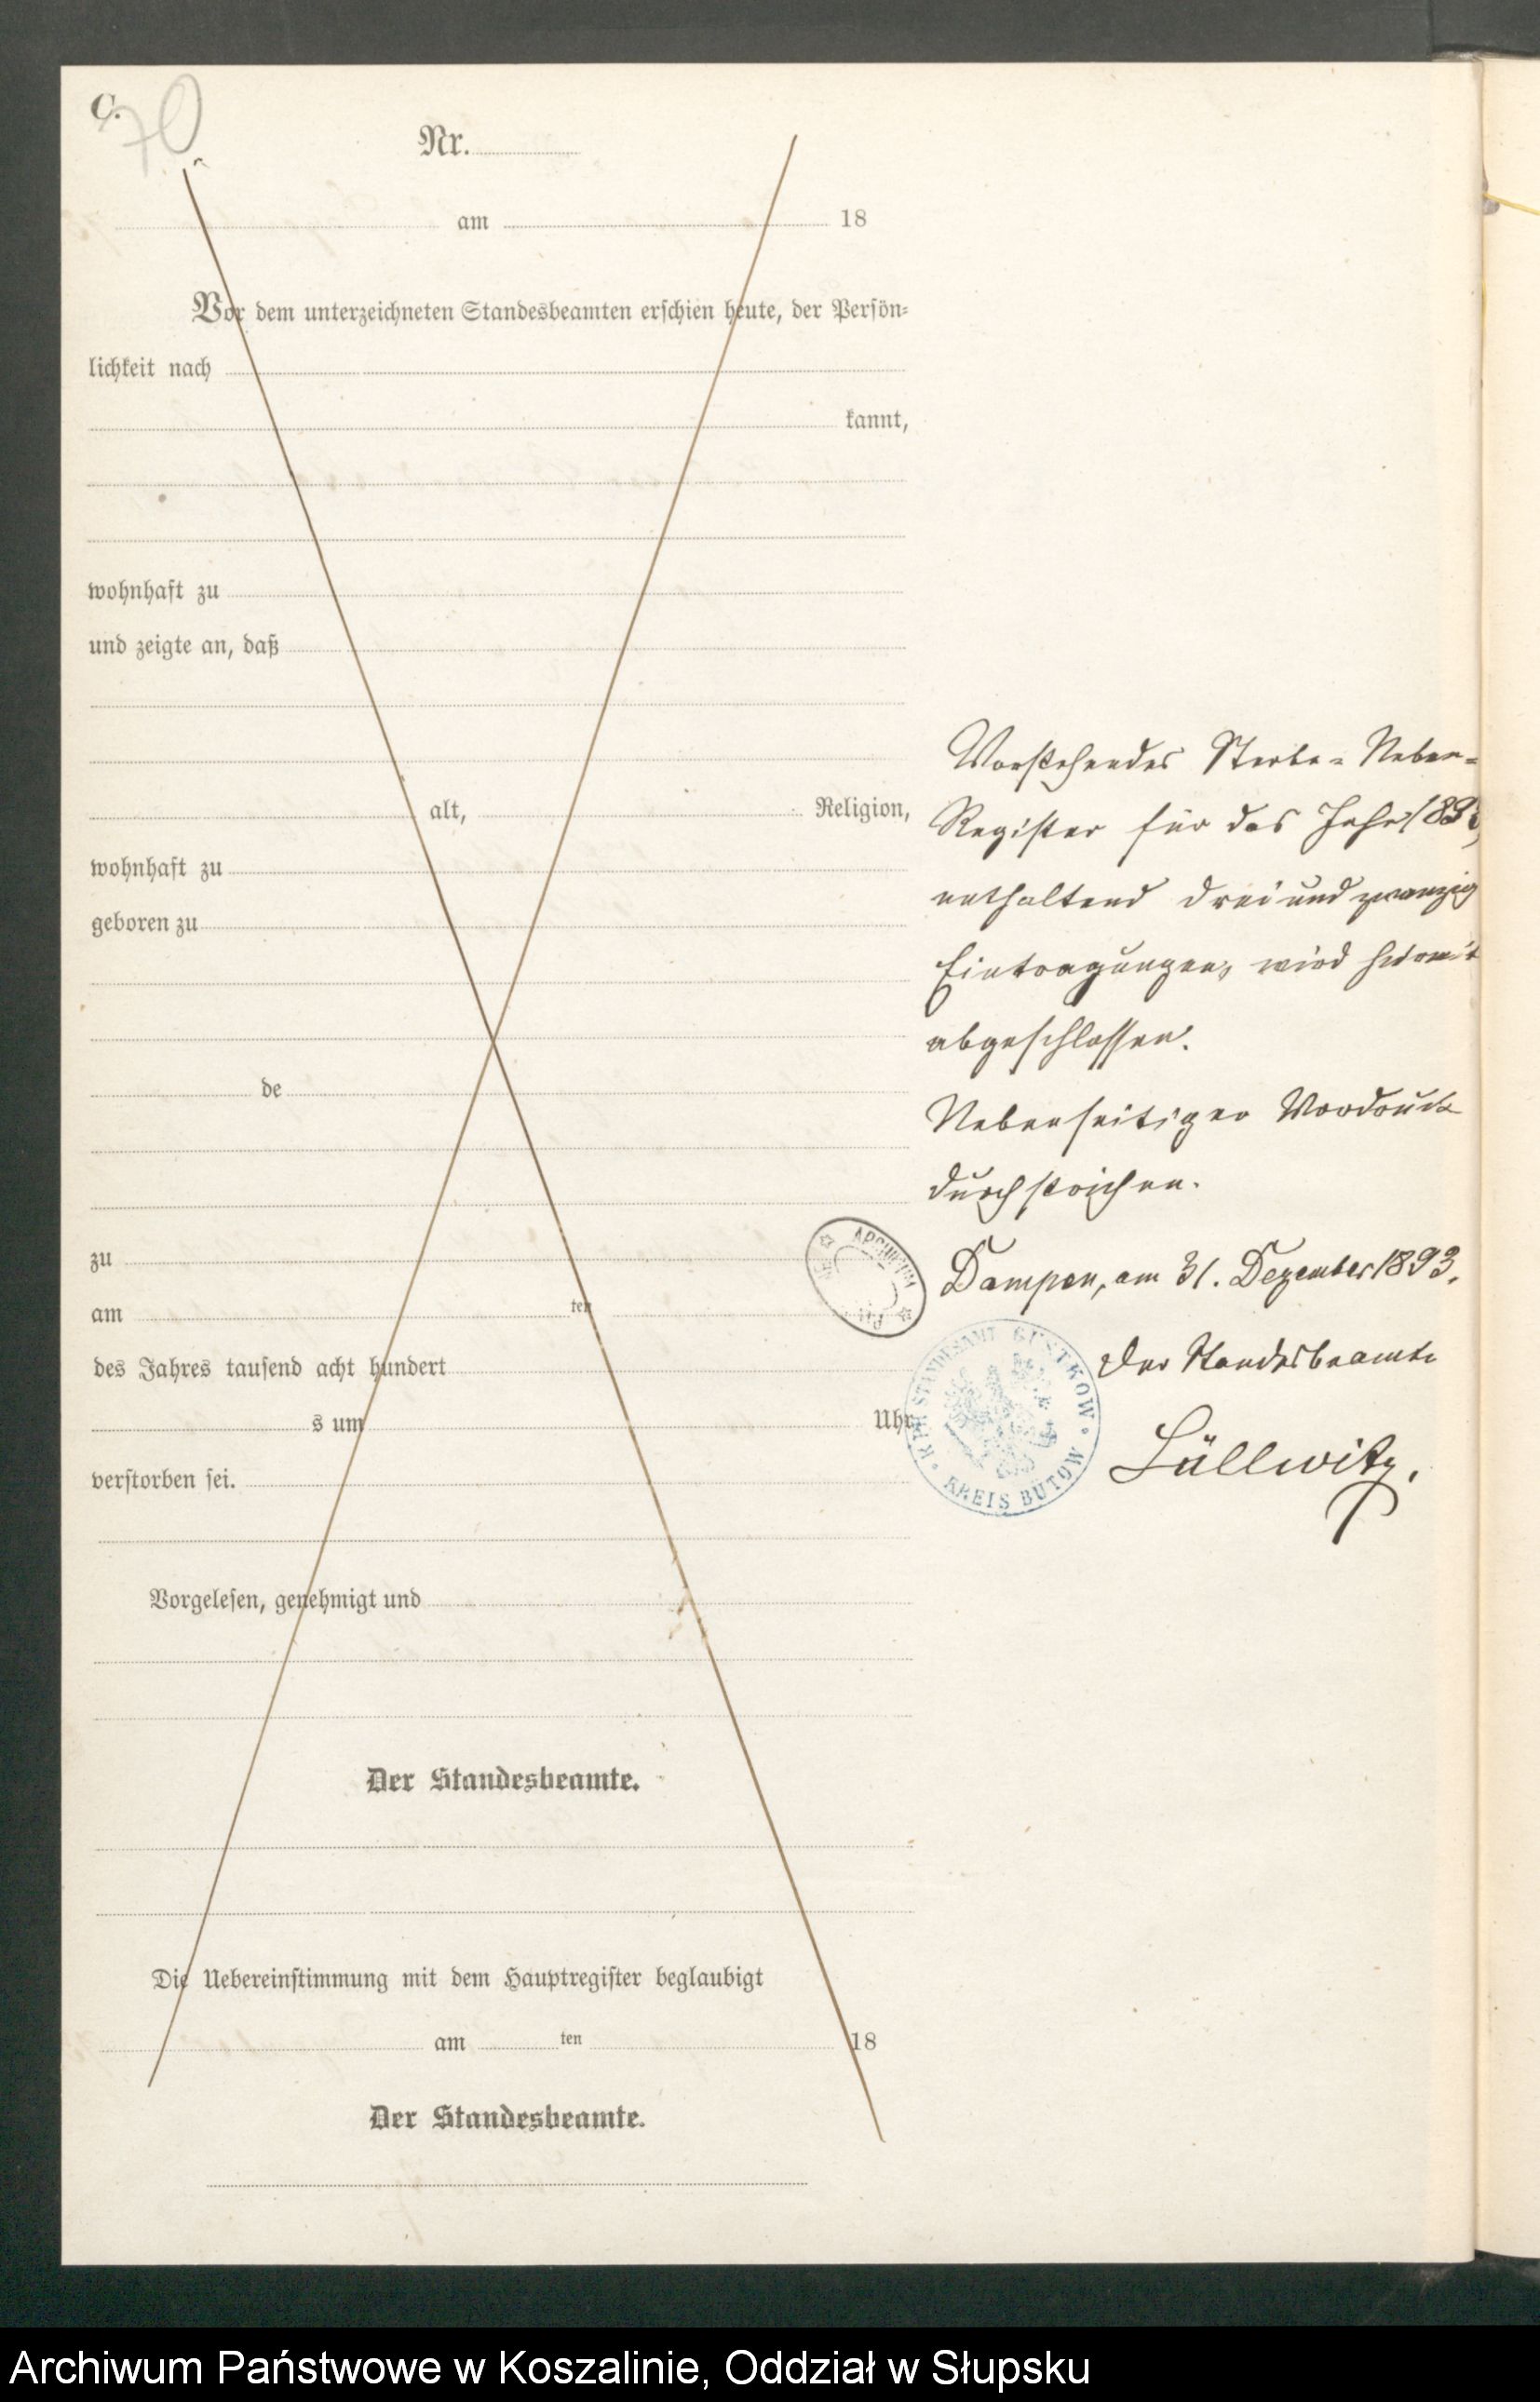 C.
70
Nr.
am 18
Vor dem unterzeichneten Standesbeamten erschien heute, der Persön-
lichkeit nach
kannt,
wohnhaft zu
und zeigte an, daß
alt, Religion,
wohnhaft zu
geboren zu
de
zu
am ten
des Jahres tausend acht hundert
s um Uhr
verstorben sei.
Vorgelesen, genehmigt und
Der Standesbeamte.
Die Uebereinstimmung mit dem Hauptregister beglaubigt
am ten 18
Der Standesbeamte.
Vorstehendes Sterbe-Neben-
Register für das Jahr 1893,
enthaltend drei und zwanzig
Eintragungen, wird hiermit
abgeschlossen.
Nebenseitiger Vordruck
durchstrichen.
Dampen, am 31. Dezember 1893.
Der Standesbeamte
Lüllwitz.
ARCHIWUM
STANDESAMT GUSTKOW
KREIS BÜTOW
Archiwum Państwowe w Koszalinie, Oddział w Słupsku